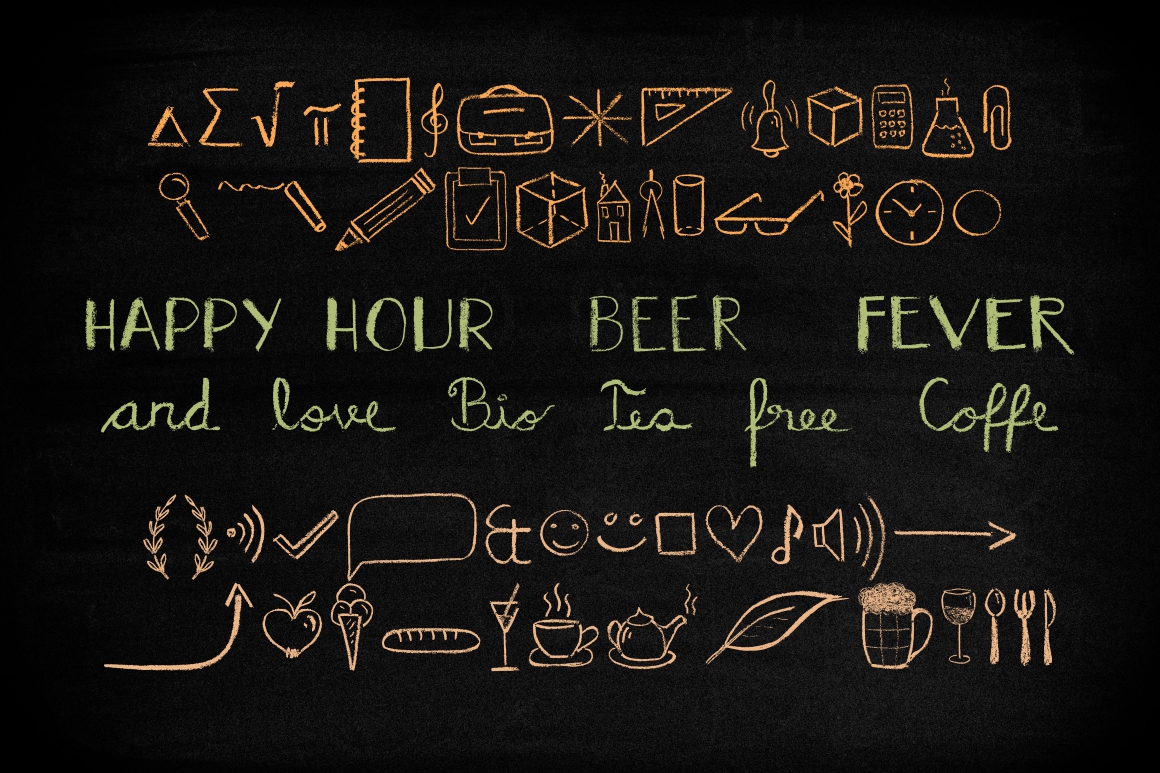 Σ √ π
HAPPY HOUR BEER FEVER
and love Bio Tea free Coffe
&